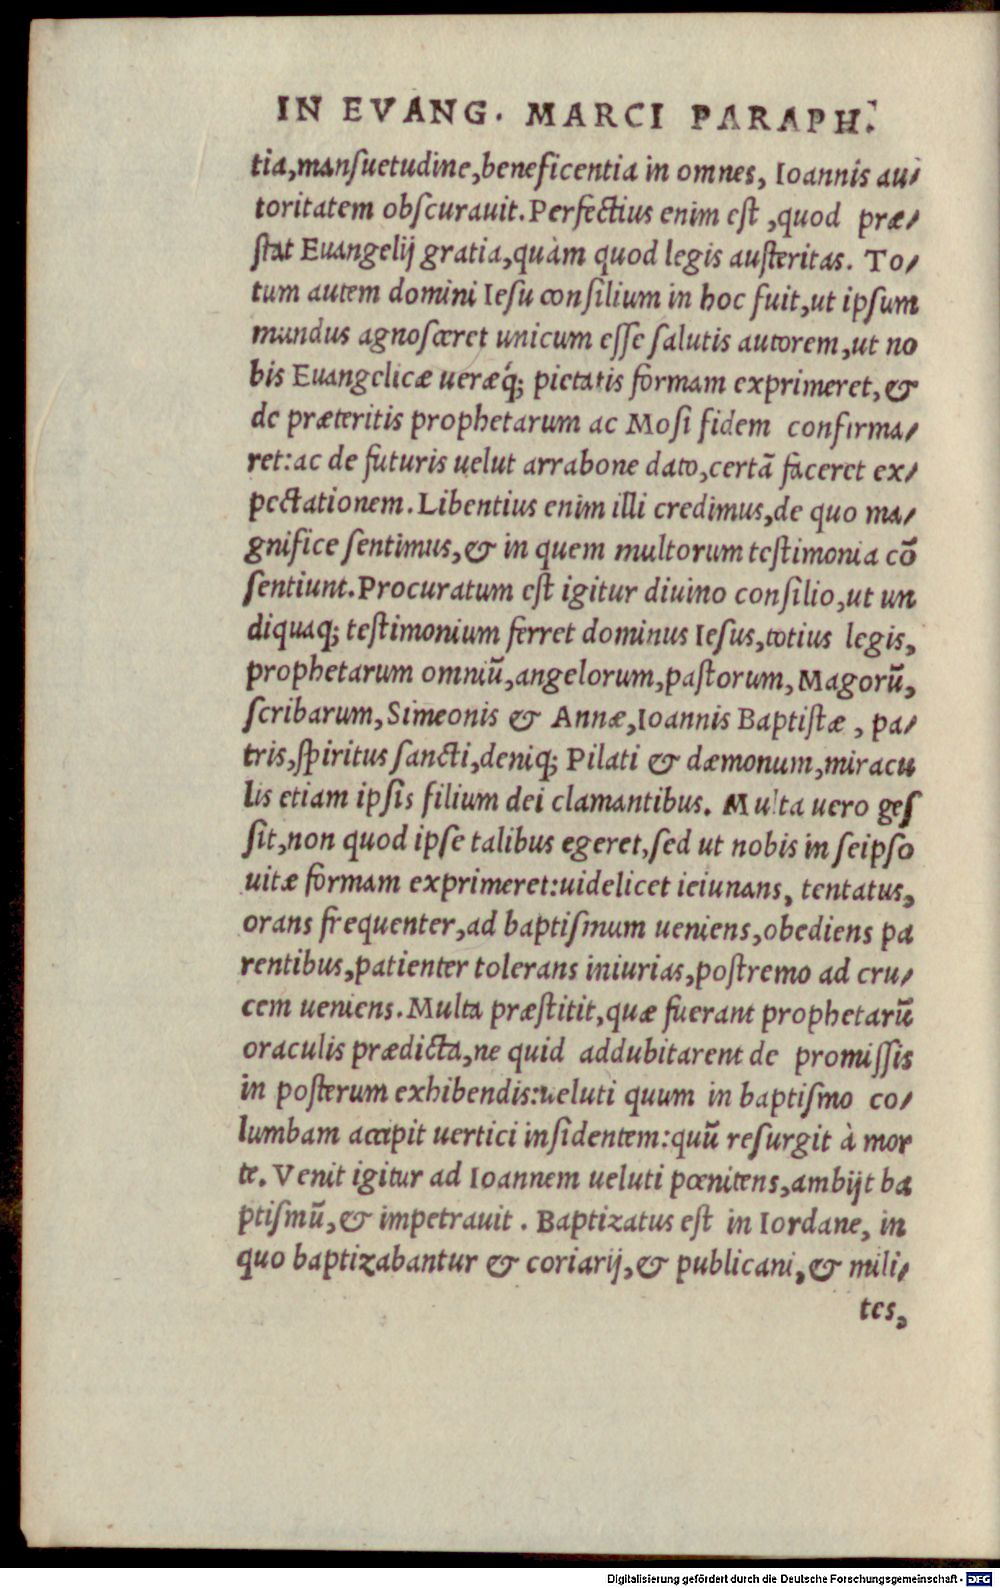 IN EVANG. MARCI PARAPH.
tia,manſuetudine,beneficentia in omnes, Ioannis au⸗
toritatem obſcurauit.Perfectius enim eſt ,quod præ⸗
ſtat Euangelij gratia,quàm quod legis auſteritas. To⸗
tum autem domini Ieſu conſilium in hoc fuit,ut ipſum
mundus agnoſceret unicum eſſe ſalutis autorem,ut no
bis Euangelicæ ueræq́; pietatis formam exprimeret,&
de præteritis prophetarum ac Moſi fidem confirma⸗
ret:ac de futuris uelut arrabone dato,certā faceret ex⸗
pectationem.Libentius enim illi credimus,de quo ma⸗
gnifice ſentimus,& in quem multorum teſtimonia cō
ſentiunt.Procuratum eſt igitur diuino conſilio,ut un
diquaq; teſtimonium ferret dominus Ieſus,totius legis,
prophetarum omniū,angelorum,paſtorum,Magorū,
ſcribarum,Simeonis & Annæ,Ioannis Baptiſtæ , pa⸗
tris,ſpiritus ſancti,deniq; Pilati & dæmonum,miracu
lis etiam ipſis filium dei clamantibus. Multa uero geſ
ſit,non quod ipſe talibus egeret,ſed ut nobis in ſeipſo
uitæ formam exprimeret:uidelicet ieiunans, tentatus,
orans frequenter,ad baptiſmum ueniens,obediens pa
rentibus,patienter tolerans iniurias,poſtremo ad cru⸗
cem ueniens.Multa præſtitit,quæ fuerant prophetarū
oraculis prædicta,ne quid addubitarent de promiſſis
in poſterum exhibendis:ueluti quum in baptiſmo co⸗
lumbam accipit uertici inſidentem:quū reſurgit à mor
te. Venit igitur ad Ioannem ueluti pœnitens,ambijt ba
ptiſmū,& impetrauit . Baptizatus eſt in Iordane, in
quo baptizabantur & coriarij,& publicani,& mili⸗
tes,
Digitalisierung gefördert durch die Deutsche Forschungsgemeinschaft - DFG